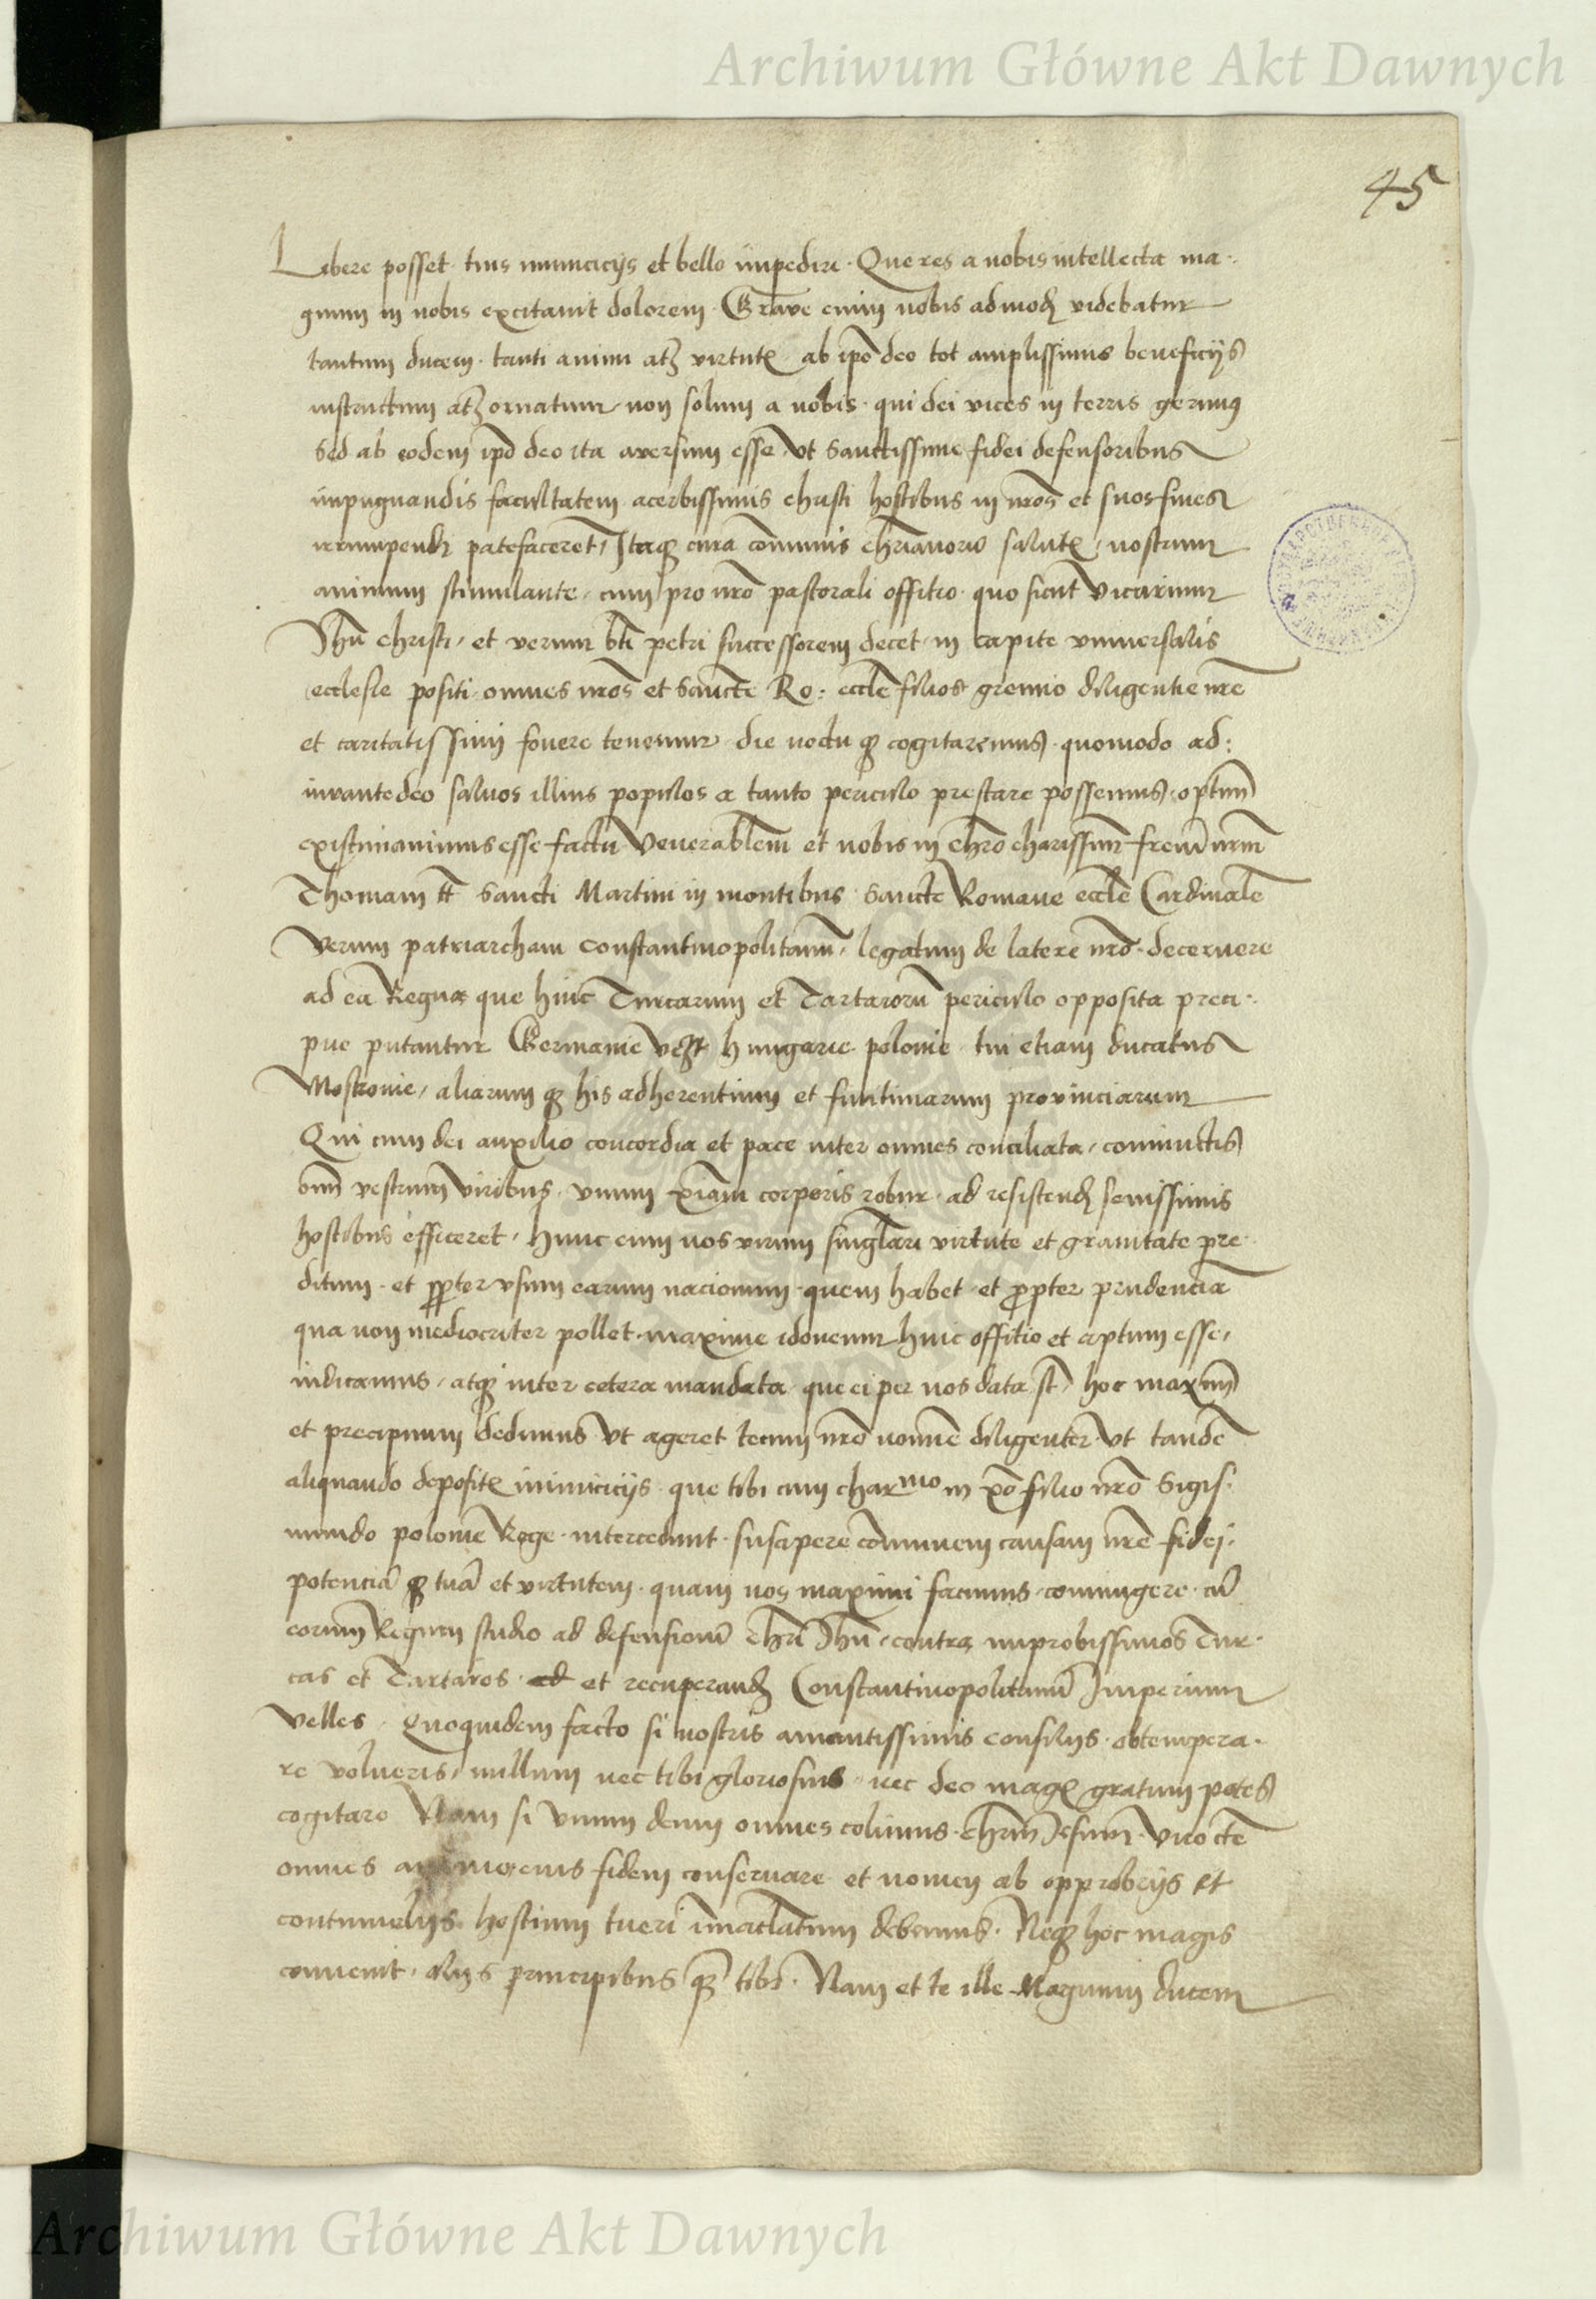 Archiwum Główne Akt Dawnych
45
Libere posset tuis inimicicijs et bello impedire. Que res a nobis intellecta ma-
gnum in nobis excitauit dolorem. Graue enim nobis admodum videbatur
tantum ducem. tanti animi atqȝ virtutis ab ipo deo tot amplissimis beneficijs
instructum atqȝ ornatum non solum a nobis. qui dei vices in terris gerimus
Sed ab eodem ipo deo ita auersum esse vt Sanctissime fidei defensoribus
impugnandis facultatem acerbissimis christi hostibus in nros et suos fines
irrumpendi patefaceret, Itaqȝ cura communis christianorum salutis, nostrum
animum stimulante, cum pro nro pastorali offitio quo sicut vicarium
Jhu christi, et verum bti petri successorem decet in capite vniuersalis
ecclesie positi omnes nros et Sancte Ro: eccle filios gremio diligentie nre
et caritatis sinu fouere tenemur die noctuqȝ cogitaremus. quomodo ad:
iuuante deo saluos illius populos a tanto periculo prestare possemus. optimum
existimauimus esse factu Venerablem et nobis in chro charissim frem nrm
Thomam tt Sancti Martini in montibus Sancte Romane eccle Cardinalem
Verum patriarcham Constantinopolitanum, legatum de latere nro. decernere
ad ea Regna que huic Turcarum et Tartarorum periculo opposita preci-
pue putantur Germanie vzt hungarie polonie tui etiam ducatus
Moscouie, aliarumqȝ his adherentium et finitimarum prouinciarum
Qui cum dei auxilio concordia et pace inter omnes conciliata, coniunctis
omnium vestrum viribus. vnum xpiani corporis robur ad resistendum seuissimis
hostibus efficeret, Hunc enim nos virum singlari virtute et grauitate pre-
ditum. et propter vsum earum nacionum quem habet et propter prudenciam
qua non mediocriter pollet. maxime idoneum huic offitio et aptum esse,
iudicamus, atqȝ inter cetera mandata que ei per nos data st, hoc maximum
et precipuum dedimus vt ageret tecum nro nomine diligenter vt tandem
aliquando depositis inimicicijs que tibi cum charmo in xpo filio nro Sigis-
mundo polonie Rege intercedunt. suscipere communem causam nre fidei.
potenciamqȝ tuam et virtutem. quam nos maximi facimus. coniungere. cum
eorum Regum studio ad defensionem chri Jhu, contra improbissimos Tur-
cas et Tartaros. et recuperandum Constantinopolitanum Imperium
velles, Quoquidem facto si nostris amantissimis consilijs obtempera-
re volueris, nullum nec tibi gloriosius, nec deo magis gratum potes
cogitare Nam si vnum deum omnes colimus. chrm Jesum.
omnes fidem conseruare et nomen ab opprobrijs et
contumelijs hostium tueri immaclatum debemus. Neqȝ hoc magis
conuenit. alijs principibus qȝ tibi. Nam et te ille Magnum ducem
Archiwum Główne Akt Dawnych